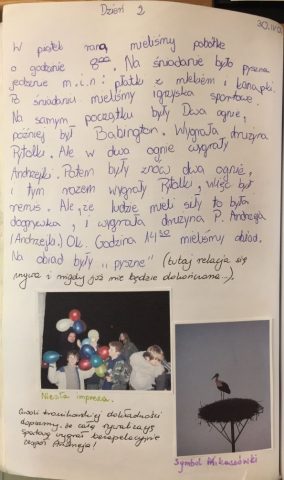 Dzień 2
W piątek rano mieliśmy pobódkę
o godzinie 8⁰⁰. Na śniadanie było pyszne
jedzenie m.i.n: płatki z mlekiem i kanapki.
Po śniadaniu mieliśmy igrzyska sportowe.
Na samym początku były Dwa ognie,
później był Babington. Wygrała drużyna
Rytołki. Ale w dwa ognie wygrały
Andrzejki. Potem były znów dwa ognie,
i tym razem wygrały Rytołki, więc był
remis. Ale, że ludzie mieli siły to była
dogrywka, i wygrała drużyna P. Andrzeja
(Andrzejki). Ok. Godzina 14³⁰ mieliśmy obiad.
Na obiad były „pyszne" (tutaj relacja się
urywa i nigdy już nie będzie dokończona...).
Niezła impreza.
dokładności
dopiszmy, że całą rywalizację
sportową wygrał bezapelacyjnie
zespół Andrzeja!
Symbol